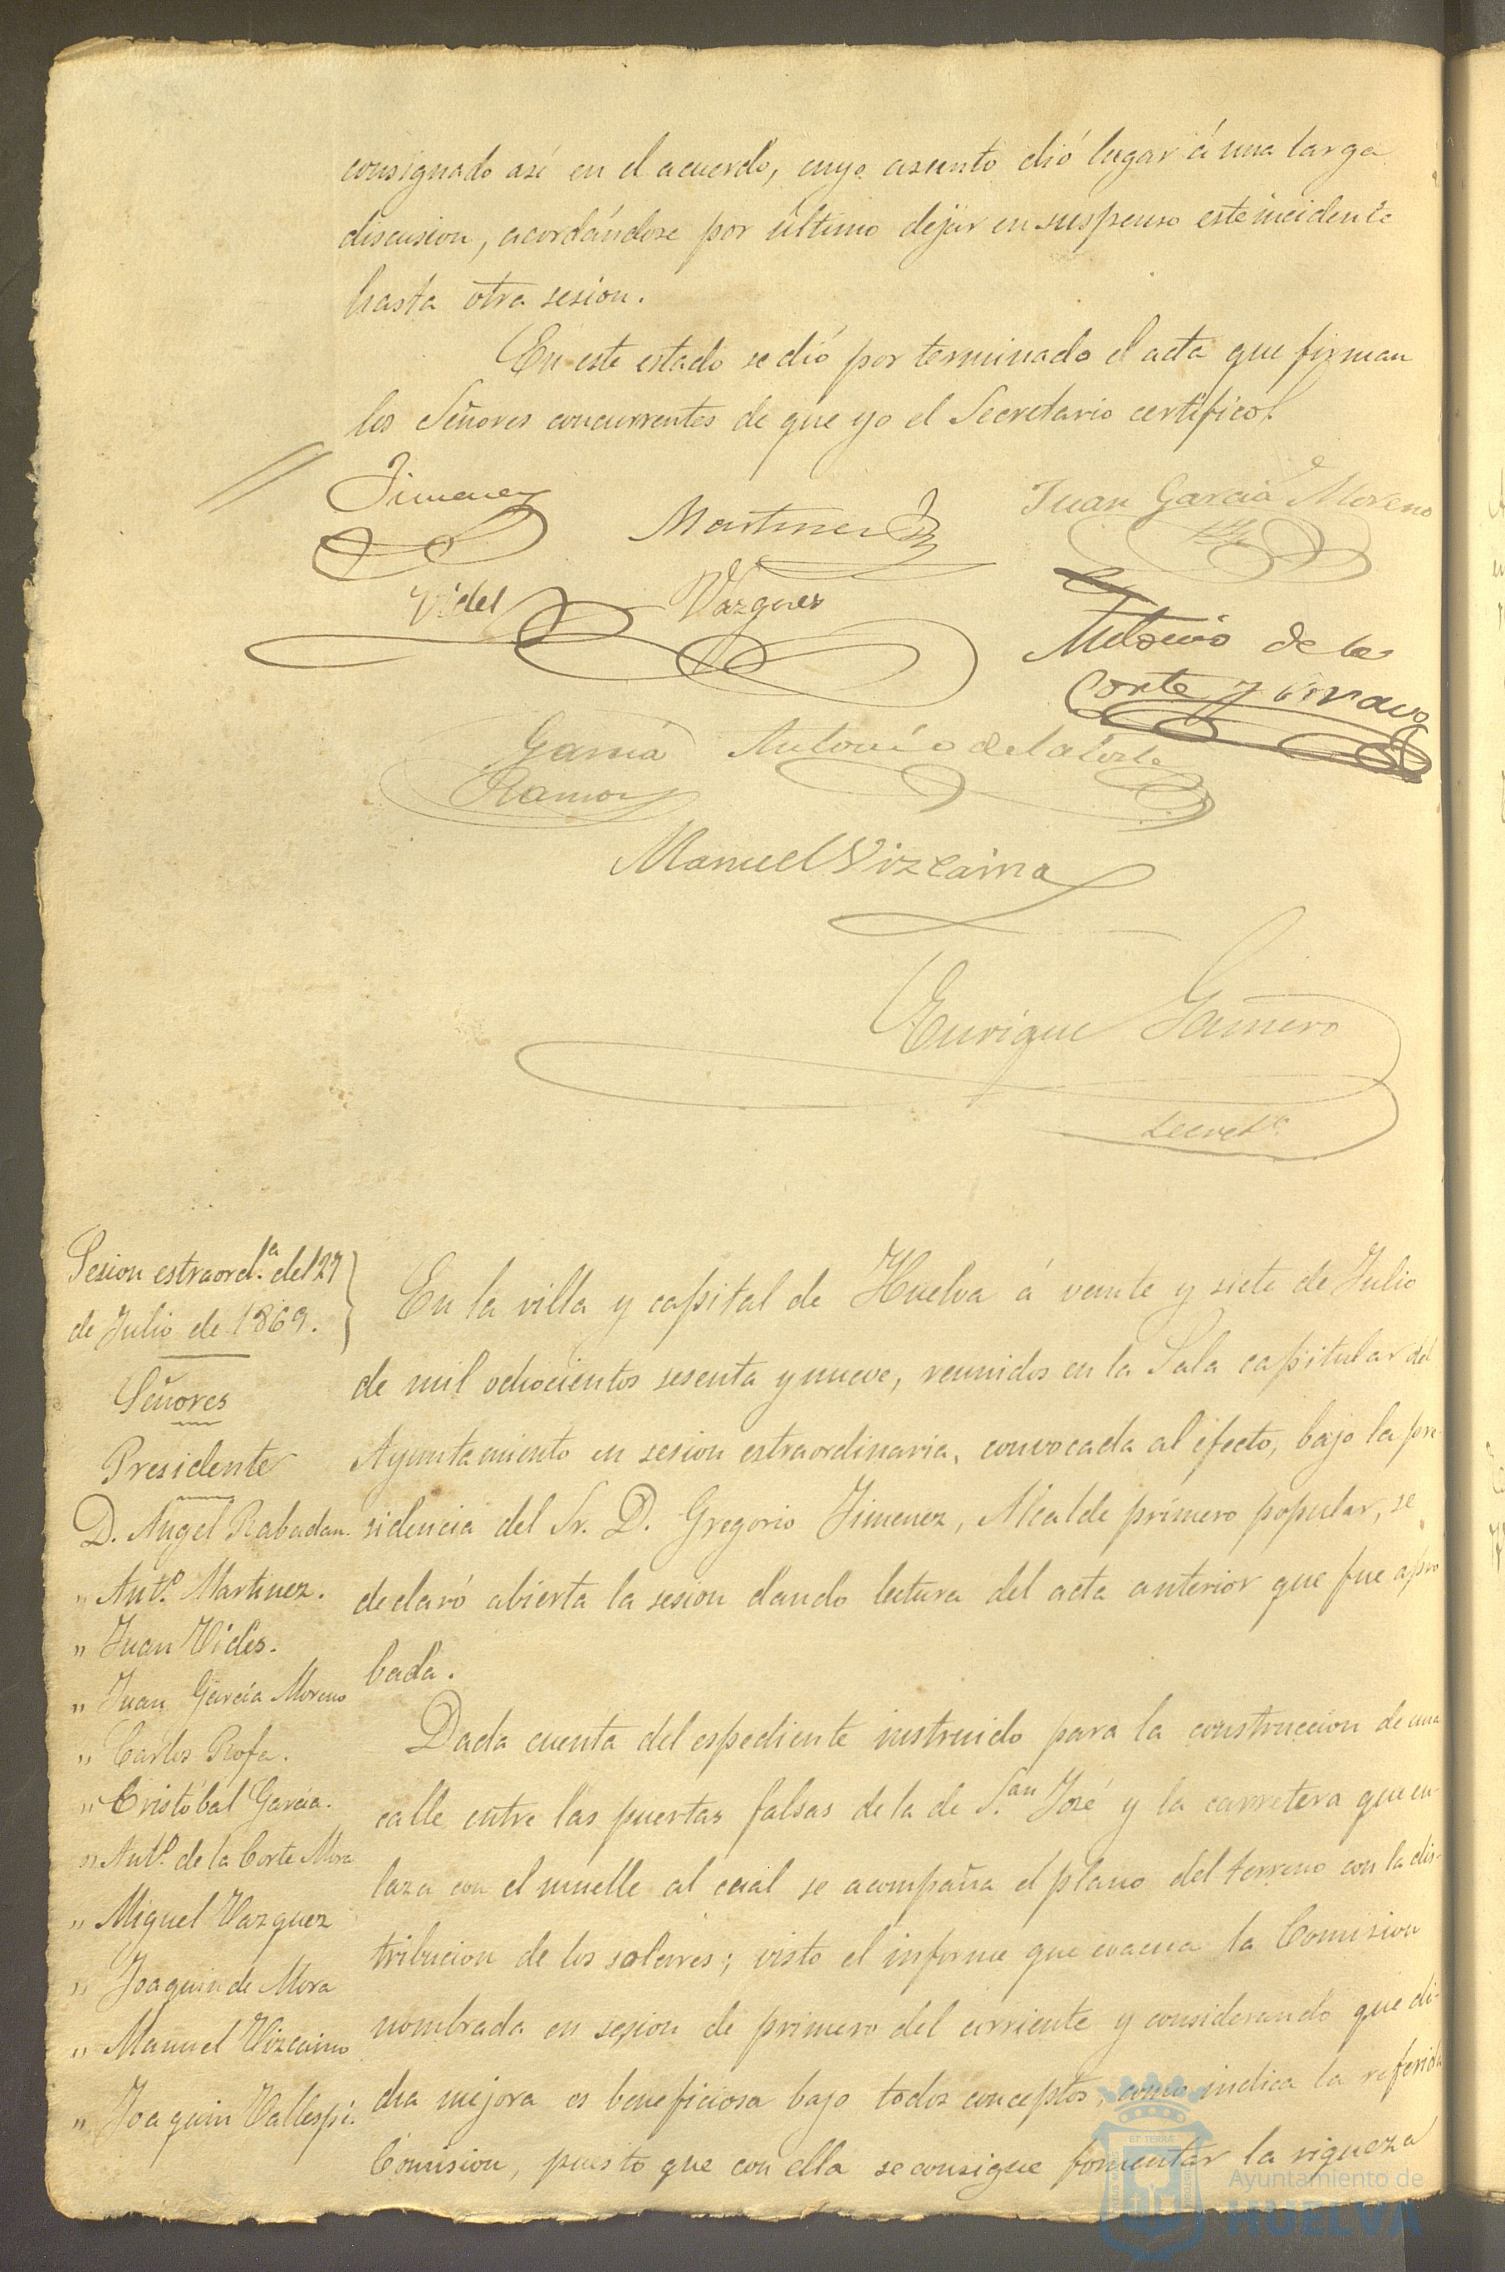 consignado asi en el acuerdo, cuyo asunto dió lugar á una larga
discusion, acordándose por último dejar en suspenso este incidente
hasta otra sesion.
En este estado se dió por terminado el acta que firman
los Señores concurrentes de que yo el Secretario certifico.
Jimenez
Martinez
Juan Garcia Moreno
Vides
Vazquez
Antonio de la
Corte y Bravo
Garcia
Ramos
Antonio de la Corte
Manuel Vizcaino
Enrique Gamero
Secret.o
Sesion estraord.a del 27
de Julio de 1869.
Señores
Presidente
D. Angel Rabadan.
" Ant.o Martinez.
" Juan Vides.
" Juan Garcia Moreno
" Cárlos Rofa.
" Cristóbal Garcia.
" Ant.o de la Corte Mora
" Miguel Vazquez
" Joaquin de Mora
" Manuel Vizcaino
" Joaquin Vallespi.
En la villa y capital de Huelva á veinte y siete de Julio
de mil ochocientos sesenta y nueve, reunidos en la Sala capitular del
Ayuntamiento en sesion estraordinaria, convocada al efecto, bajo la pre-
sidencia del Sr. D. Gregorio Jimenez, Alcalde primero popular, se
declaró abierta la sesion dando lectura del acta anterior que fue apro
bada.
Dada cuenta del espediente instruido para la construccion de una
calle entre las puertas falsas de la de S.an José y la carretera que en-
laza con el muelle al cual se acompaña el plano del terreno con la dis-
tribucion de los solares; visto el informe que evacua la Comision
nombrada en sesion de primero del corriente y considerando que di-
cha mejora es beneficiosa bajo todos conceptos, como indica la referida
Comision, puesto que con ella se consigue fomentar la riqueza
Ayuntamiento de
HUELVA